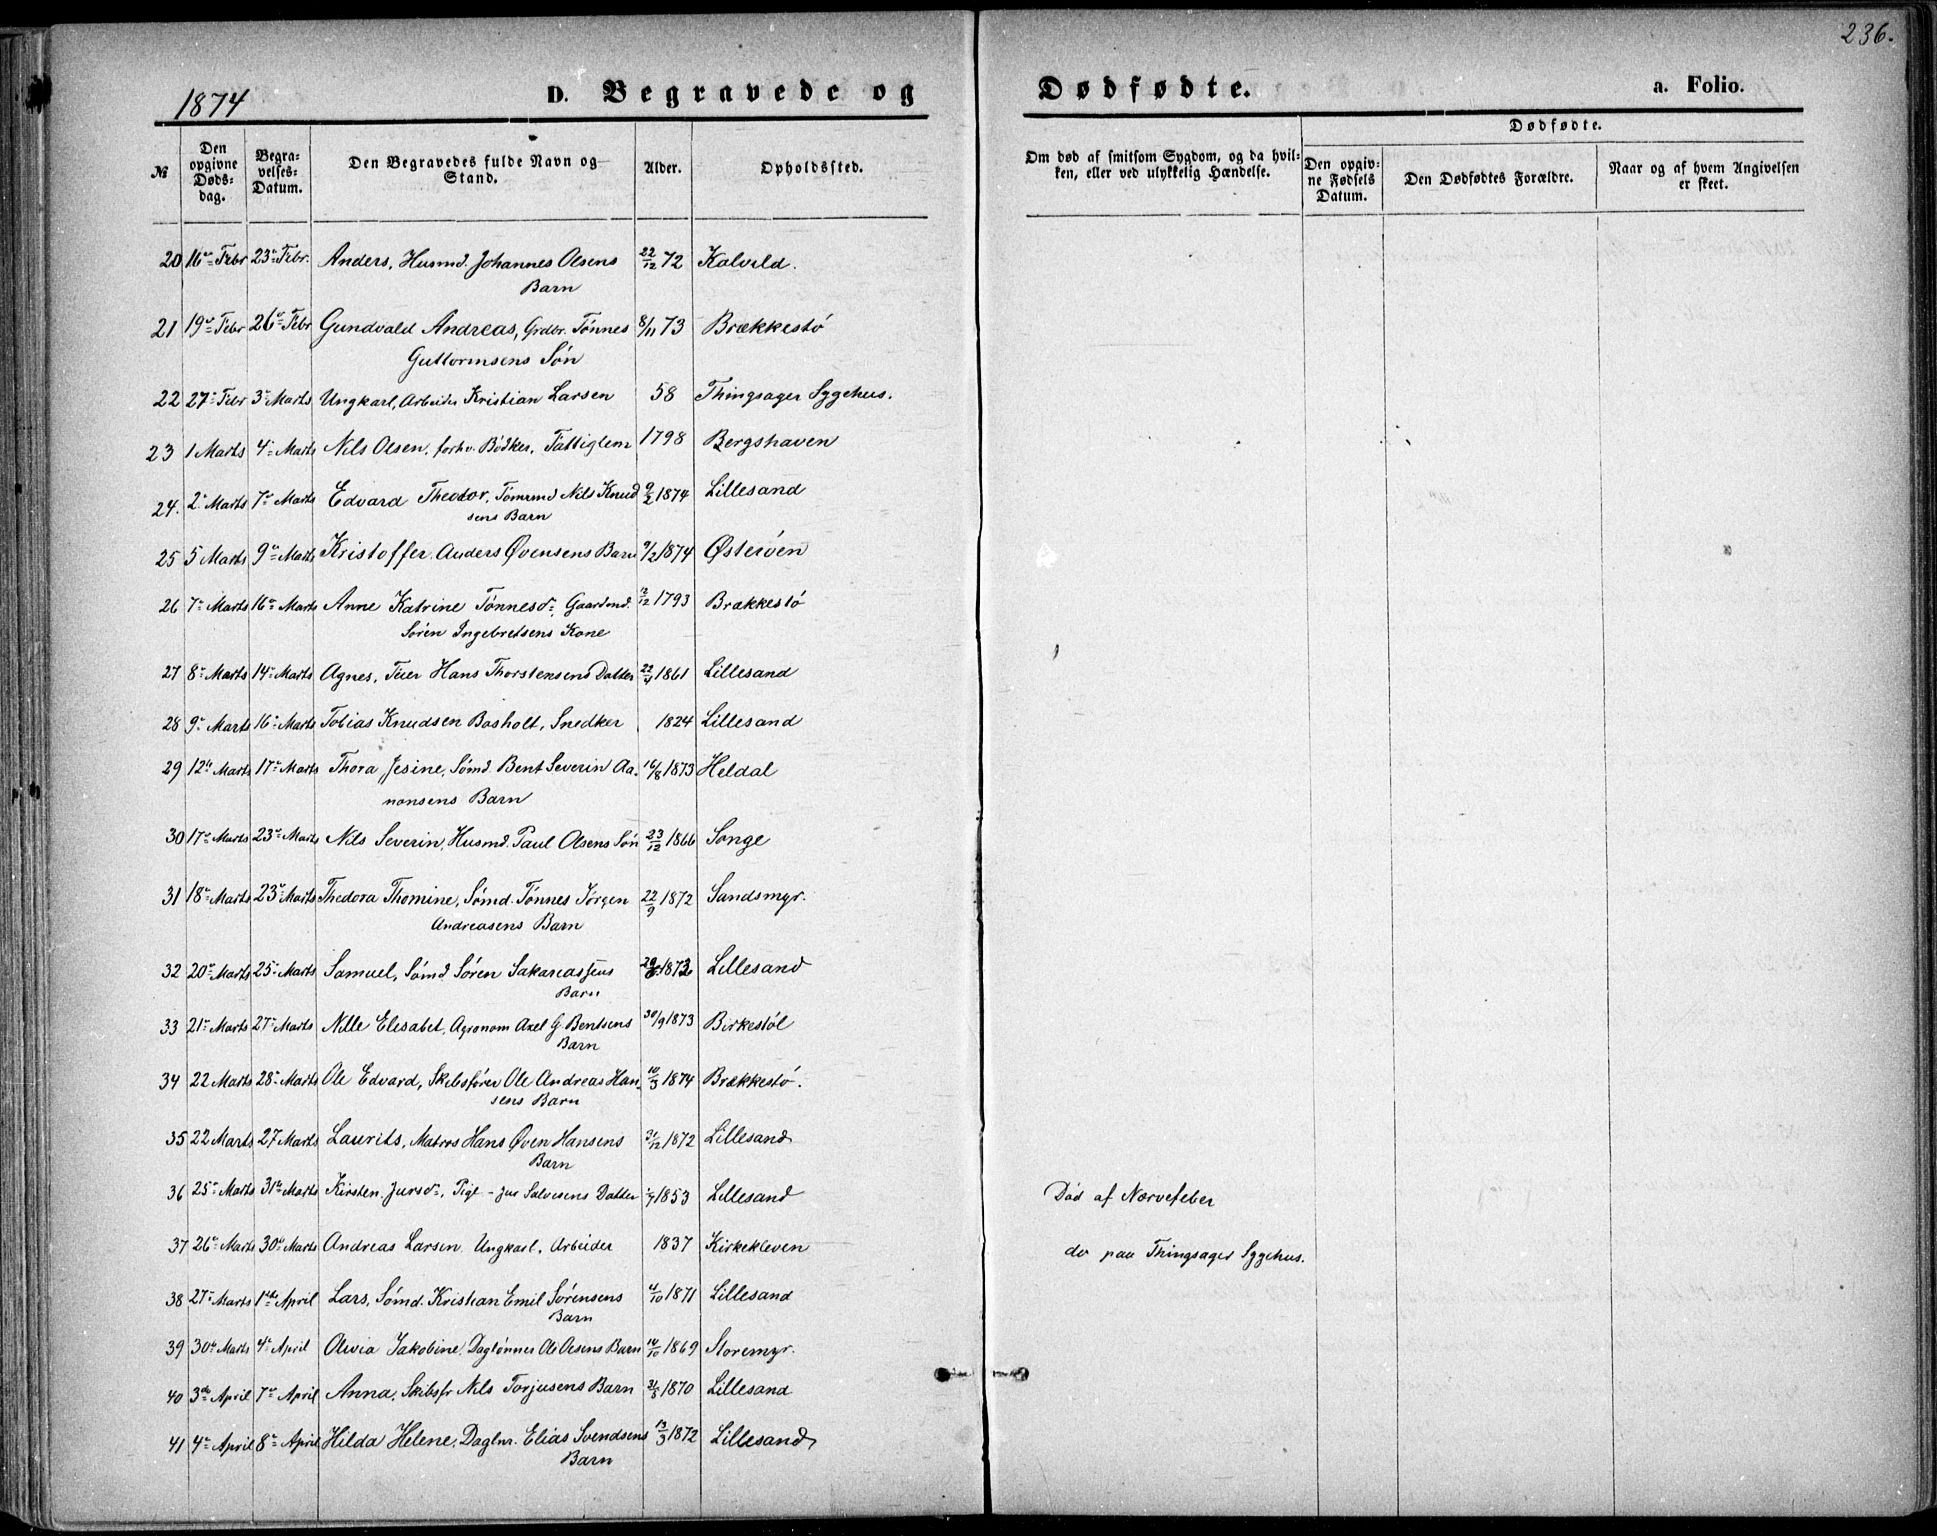 236.
1874
D. Begravede og Dødfødte. a. Folio.
№
Den opgivne Døds-dag.
Begra-velses-Datum.
Den Begravedes fulde Navn og Stand.
Alder.
Opholdssted.
Om død af smitsom Sygdom, og da hvil-ken, eller ved ulykkelig Hændelse.
Dødfødte.
Den opgiv-ne Fødsels Datum.
Den Dødfødtes Forældre.
Naar og af hvem Angivelsen er skeet.
20 16 Febr 23 Febr. Anders, Husmd. Johannes Olsens 22/12 72 Kalveld.
Barn
21 19 Febr 26 Febr Gundvald Andreas, Grdbr. Tönnes 8/11 73 Brækkestö
Guttormsens Sön
22 27 Febr 3 Marts Ungkarl, Arbeider Kristian Larsen 58 Thingsager Sygehus.
23 1 Marts 4 Marts Nils Olsen, forhv. Bödker, Fattiglem 1798 Bergshaven
24. 2 Marts 7 Marts Edvard Theodor, Tömrmd Nils Knud 9/2 1874 Lillesand
sens Barn
25 5 Marts 9 Marts Kristoffer. Anders Øvensens Barn 9/2 1874 Østeröen
26 7 Marts 16 Marts Anne Katrine Tönnesd., Gaardmd. 12/12 1793 Brækkestö
Sören Ingebretsens Kone
27 8 Marts 14 Marts Agnes, Hans Thorstensens Datter 22/4 1861 Lillesand
28 9 Marts 16 Marts Tobias Knudsen Bosholt, Snedker 1824 Lillesand
29 12te Marts 17 Marts Thora Jesine, Sömd. Bent Severin Aa- 16/8 1873 Heldal
nonsens Barn
30 17 Marts 23 Marts Nils Severin, Husmd. Paul Olsens Sön 23/12 1866 Songe
31 18 Marts 23 Marts Thedora Thomine, Sömd. Tönnes Jörgen 22/9 1872 Sandsmyr.
Andreasens Barn
32 20 Marts 25 Marts Samuel, Sömd Sören Sakariassens Lillesand
Barn
33 21 Marts 27 Marts Nille Elisabet, Agronom Axel G. Bentsens 30/9 1873 Birkestöl
Barn
34 22 Marts 28 Marts Ole Edvard, Skibsförer Ole Andreas Han- 10/3 1874 Brækkestö.
sens Barn
35 22 Marts 27 Marts Laurits, Matros Hans Øven Hansens 31/12 1872 Lillesand
Barn
36 25 Marts 31te Marts Kirsten Jursd., Pige - Jur Salvesens Datter 1853 Lillesand Död af Nervefeber
37 26 Marts 30te Marts Andreas Larsen. Ungkarl, Arbeider 1837 Kirkekleven do paa Thingsager Sygehus.
38 27 Marts 1ste April Lars, Sömd. Kristian Emil Sörensens 4/10 1871 Lillesand
Barn
39 30te Marts 4 April Olivia Jakobine, Daglönner Ole Olsens Barn 14/10 1869 Storemyr.
40 3de April 7 April Anna, Skibsfr Nils Torjusens Barn 31/5 1870 Lillesand
41 4 April 8 April Hilda Helene, Daglnr. Elias Svendsens 13/3 1872 Lillesand
Barn